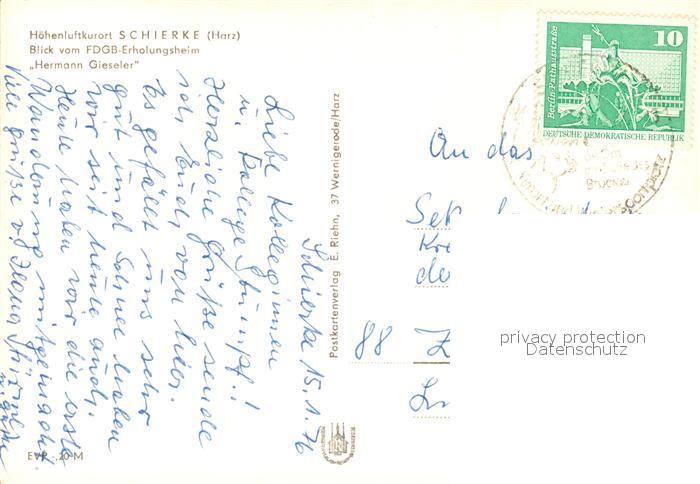 Höhenluftkurort SCHIERKE (Harz)
Blick vom FDGB-Erholungsheim
„Hermann Gieseler"
Schierke 15.1.76
Liebe Kolleginnen
u. Kollege Stumpf!
Herzliche Grüße sende
ich Euch von hier.
Es gefällt uns sehr
gut und Schnee haben
wir seit heute auch.
Heute haben wir die erste
Wanderung mitgemacht.
Viele Grüße v.
EVP -,20 M
Postkartenverlag E. Riehn, 37 Wernigerode/Harz
10
Berlin Rathausstraße
DEUTSCHE DEMOKRATISCHE REPUBLIK
An das
88 Z
privacy protection
Datenschutz